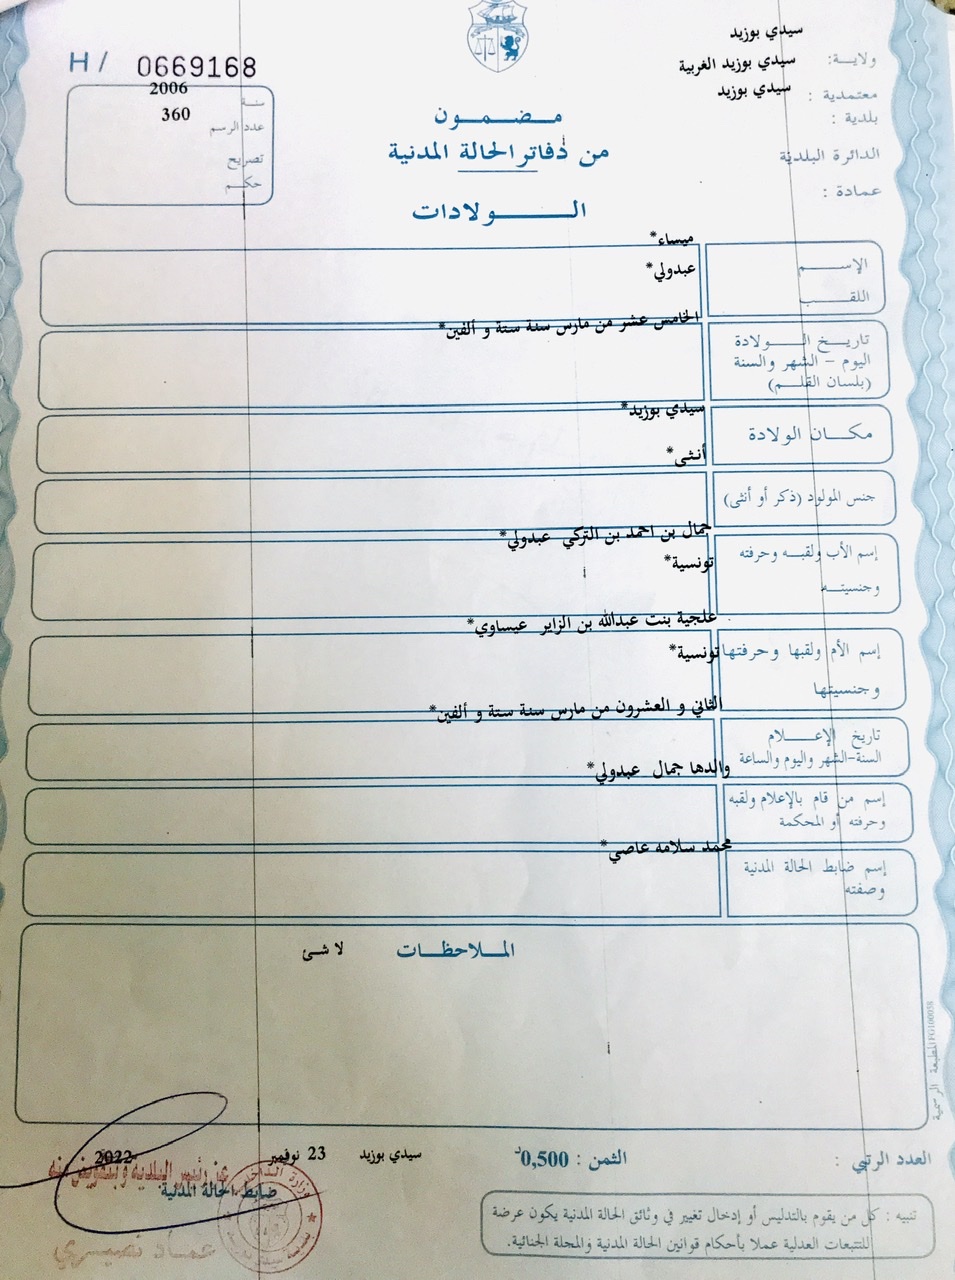 H/ 0669168
سنة 2006
عدد الرسم 360
تصريح
حكم
سيدي بوزيد
ولاية: سيدي بوزيد الغربية
معتمدية : سيدي بوزيد
بلدية :
الدائرة البلدية
عمادة :
مضمون
من دفاتر الحالة المدنية
الولادات
ميساء*
الإسم عبدولي*
اللقب
الخامس عشر من مارس سنة ستة و ألفين*
تاريخ الولادة
اليوم - الشهر والسنة
(بلسان القلم)
سيدي بوزيد*
مكان الولادة
أنثى*
جنس المولود (ذكر أو أنثى)
جمال بن احمد بن التركي عبدولي*
إسم الأب ولقبه وحرفته
تونسية*
وجنسيته
علجية بنت عبدالله بن الزاير عيساوي*
إسم الأم ولقبها وحرفتها تونسية*
وجنسيتها
الثاني و العشرون من مارس سنة ستة و ألفين*
تاريخ الإعلام
السنة-الشهر واليوم والساعة
والدها جمال عبدولي*
إسم من قام بالإعلام ولقبه
وحرفته أو المحكمة
محمد سلامه عاصي*
إسم ضابط الحالة المدنية
وصفته
الملاحظات لا شئ
المطبعة الرسمية
العدد الرتبي :
الثمن : 0,500د
سيدي بوزيد 23 نوفمبر 2022
عن رئيس البلدية وبتفويض منه
ضابط الحالة المدنية
عماد نصيري
تنبيه : كل من يقوم بالتدليس أو إدخال تغيير في وثائق الحالة المدنية يكون عرضة
للتتبعات العدلية عملا بأحكام قوانين الحالة المدنية والمجلة الجنائية.